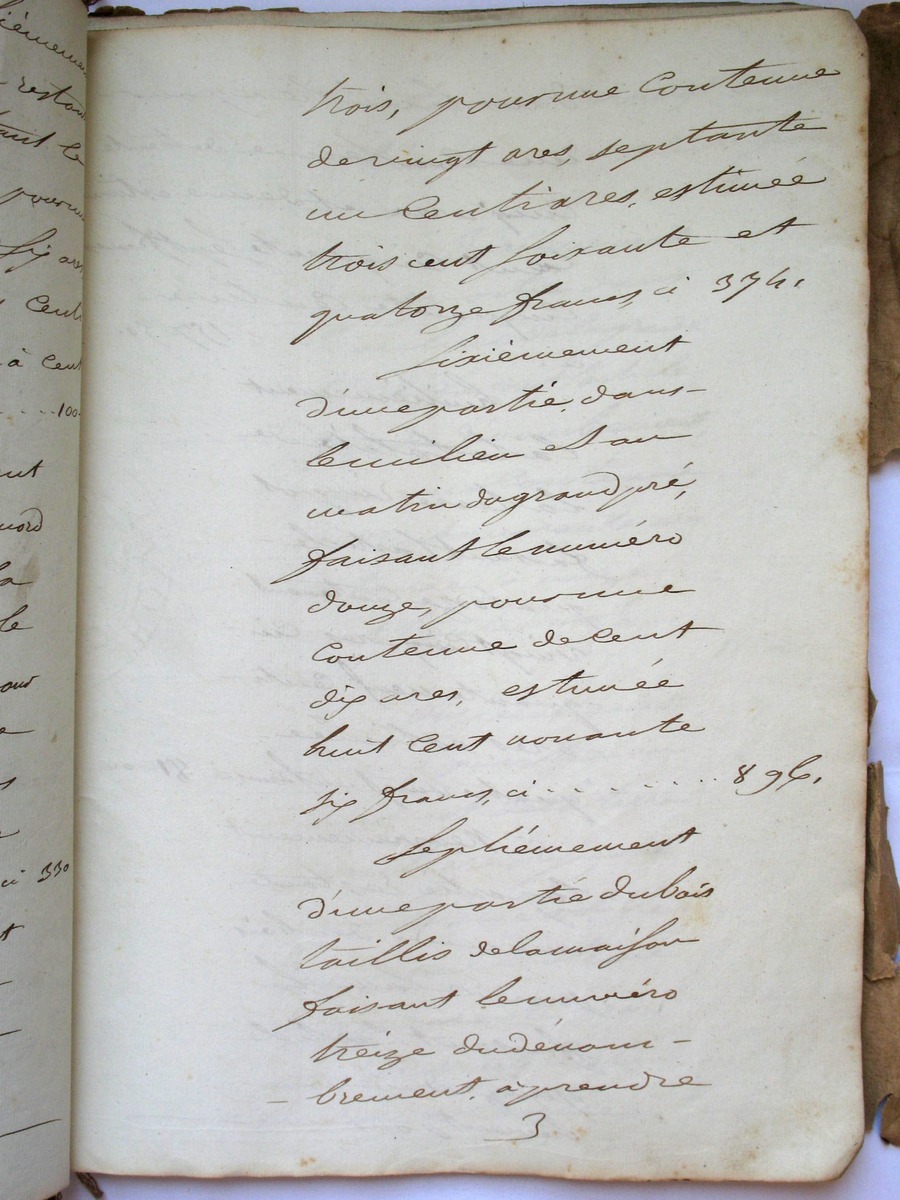 iémement
restan
tant le
pour un
six ares
cent
à cent
. . . 100.
nord
la
le
ci 330
trois, pour une Contenue
de vingt ares, septante
un Centiares, estimée
trois cent soixante et
quatorze francs, ci 374.
Sixièmement
d'une partie, dans
le milieu et au
matin du grand pré,
faisant le numéro
douze, pour une
Contenue de Cent
dix ares, estimée
huit Cent nonante
six francs, ci . . . . . . . . 896.
Septiémement
d'une partie du bois
taillis de la maison
faisant le numéro
treize du dénom-
- brement, à prendre
3